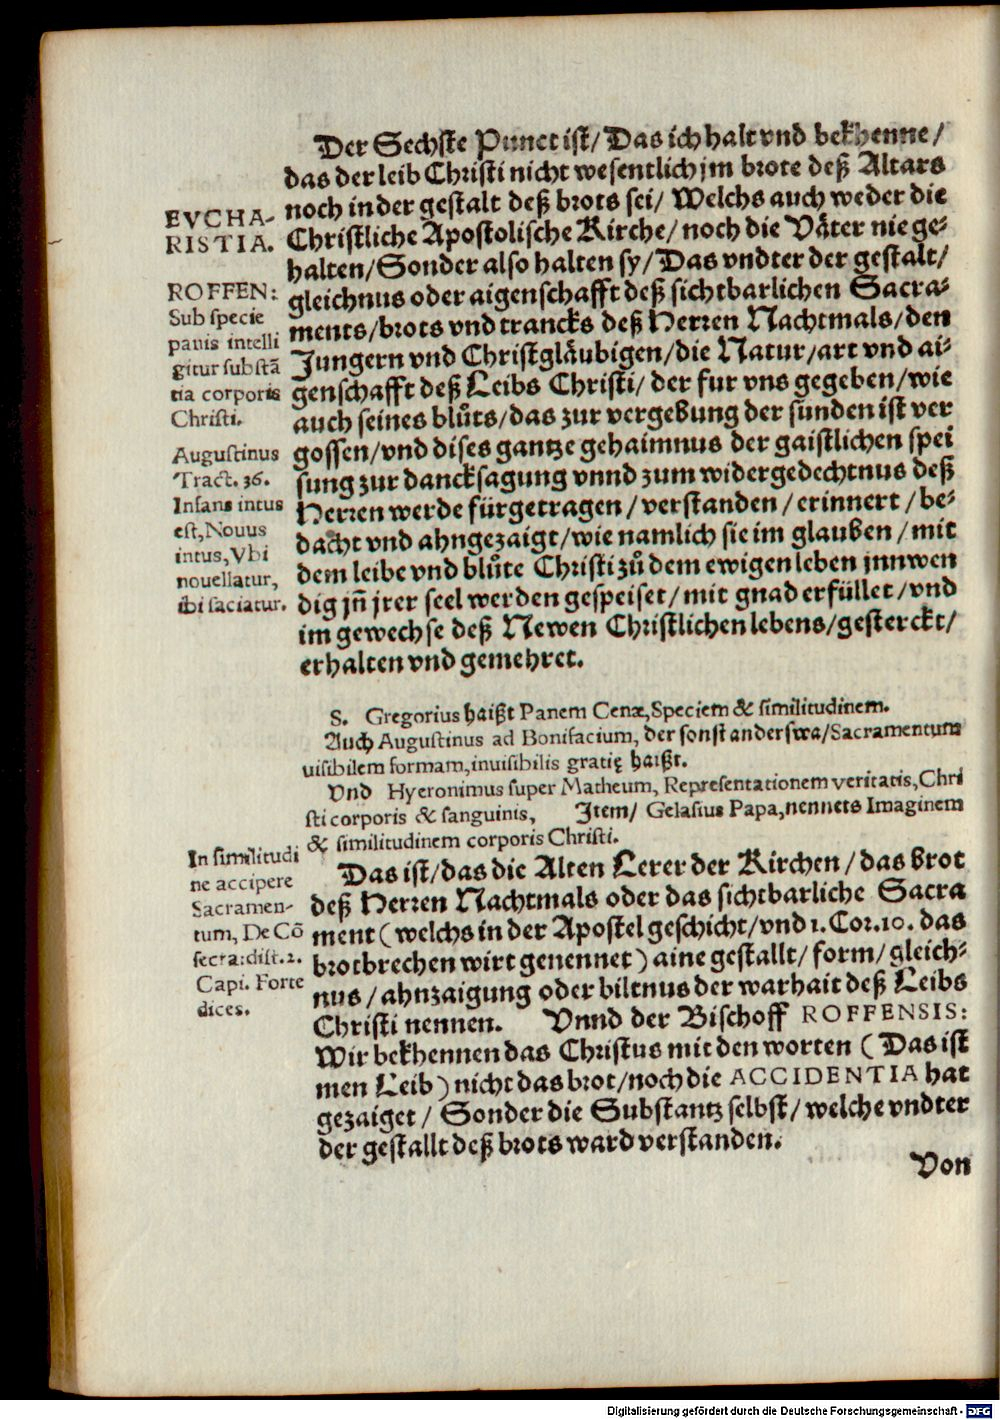 Der Sechste Punct ist/ Das ich halt vnd bekhenne/
das der leib Christi nicht wesentlich jm brote deß Altars
noch in der gestalt deß brots sei/ Welchs auch weder die
Christliche Apostolische Kirche/ noch die Våter nie ge-
halten/ Sonder also halten sy/ Das vndter der gestalt/
gleichnus oder aigenschafft deß sichtbarlichen Sacra-
ments/ brots vnd trancks deß Herren Nachtmals/ den
Jungern vnd Christgläubigen/ die Natur/ art vnd ai-
genschafft deß Leibs Christi/ der fur vns gegeben/ wie
auch seines blůts/ das zur vergebung der sünden ist ver
gossen/ vnd dises gantze gehaimnus der gaistlichen spei
sung zur dancksagung vnnd zum widergedechtnus deß
Herren werde fürgetragen/ verstanden/ erinnert/ be-
dacht vnd ahngezaigt/ wie namlich sie im glauben/ mit
dem leibe vnd blůte Christi zů dem ewigen leben jnnwen
dig jn̄ jrer seel werden gespeiset/ mit gnad erfüllet/ vnd
im gewechse deß Newen Christlichen lebens/ gesterckt/
erhalten vnd gemehret.
EVCHA-
RISTIA.
ROFFEN:
Sub specie
panis intelli
gitur substã
tia corporis
Christi.
Augustinus
Tract. 36.
Infans intus
est, Nouus
intus, Vbi
nouellatur,
ibi saciatur.
S. Gregorius haißt Panem Cenæ, Speciem & similitudinem.
Auch Augustinus ad Bonifacium, der sonst anderswa/ Sacramentum
uisibilem formam, inuisibilis gratię haißt.
Vnd Hyeronimus super Matheum, Representationem veritatis, Chri
sti corporis & sanguinis, Jtem/ Gelasius Papa, nennets Imaginem
& similitudinem corporis Christi.
Das ist/ das die Alten Lerer der Kirchen/ das brot
deß Herren Nachtmals oder das sichtbarliche Sacra
ment (welchs in der Apostel geschicht/ vnd 1. Cor. 10. das
brotbrechen wirt genennet) aine gestallt/ form/ gleich-
nus/ ahnzaigung oder biltnus der warhait deß Leibs
Christi nennen. Vnnd der Bischoff ROFFENSIS:
Wir bekhennen das Christus mit den worten (Das ist
men Leib) nicht das brot/ noch die ACCIDENTIA hat
gezaiget/ Sonder die Substantz selbst/ welche vndter
der gestallt deß brots ward verstanden.
In similitudi
ne accipere
Sacramen-
tum, De Cõ
secra: dist. 2.
Capi. Forte
dices.
Von
Digitalisierung gefördert durch die Deutsche Forschungsgemeinschaft - DFG